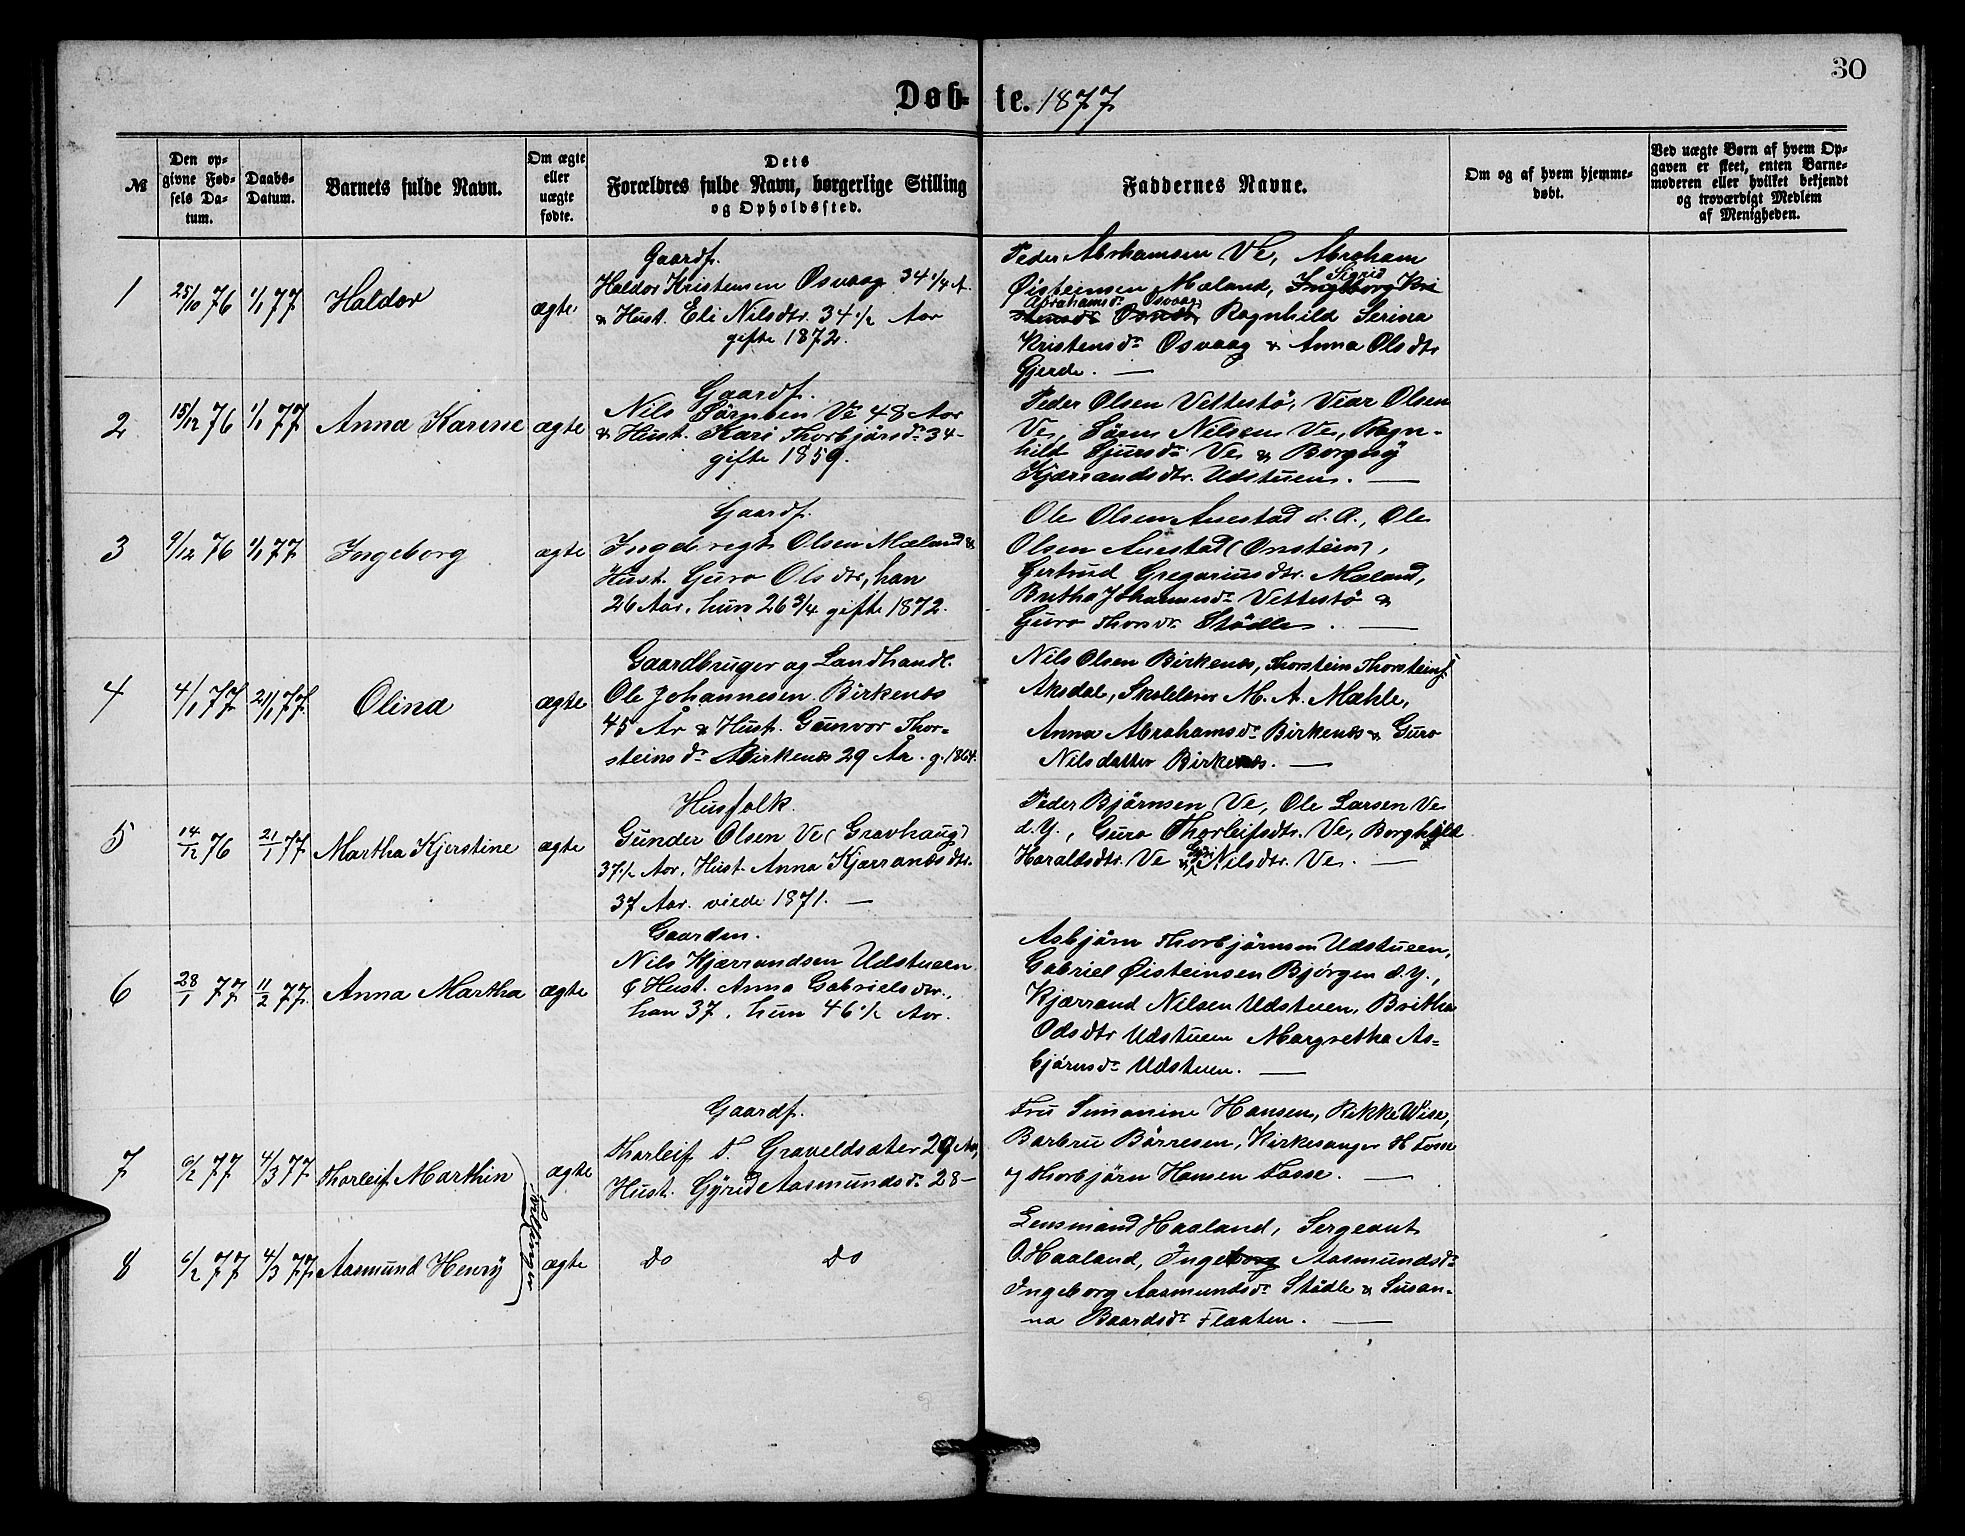 30
Døb-te. 1877
№
Den opgivne Fødsels Datum.
Daabs-Datum.
Barnets fulde Navn.
Om ægte eller uægte fødte.
Dets Forældres fulde Navn, borgerlige Stilling og Opholdssted.
Faddernes Navne.
Om og af hvem hjemmedøbt.
Ved uægte Børn af hvem Opgaven er skeet, enten Barnemoderen eller hvilket bekjendt og troværdigt Medlem af Menigheden.
1
25/10 76
1/1 77
Haldor
ægte
Gaardf.
Haldor Kristensen Osvaag 34 1/4 A.
& Hust. Eli Nilsdtr. 34 1/2 Aar
gifte 1872.
Peder Abrahamsen Ve, Abraham
Øisteinsen Mæland, Ingeborg Kri
Sigrid
Abrahamsdr Osvaag,
stensdr Ragnhild Serina
Kristensdr Osvaag & Anna Olsdtr
Gjerde. —
2
15/12 76
1/1 77
Anna Karine
ægte
Gaardf.
Nils Sørnsen Ve 48 Aar
& Hust. Kari Thorbjörsdr 34-
gifte 1859.
Peder Olsen Vettestö, Viar Olsen
Ve, Sören Nilsen Ve, Ragn-
hild Sjursdr Ve & Borgny
Kjærrandsdtr. Udstuen. —
3
9/12 76
1/1 77
Ingeborg
ægte
Gaardf.
Ingebregt Olsen Mæland &
Hust. Guro Olsdtr, han
26 Aar, hun 26 3/4 gifte 1872.
Ole Olsen Auestad d. A., Ole
Olsen Auestad (Onstein),
Gertrud Gregariusdtr. Mæland,
Britha Johannesdr Vettestö &
Guro Thorsdr. Stödle. —
4
4/1 77
21/1 77.
Olina
ægte
Gaardbruger og Landhandl.
Ole Johannesen Birkenes
45 År & Hust. Gunvor Thor-
steinsdr Birkenes 29 År. g. 1864.
Nils Olsen Birkenes, Thorstein Thorsteins.
Aksdal, Skolelærer M. A. Mæhle,
Anna Abrahamsdr Birkenes & Guro
Nilsdatter Birkenes. —
5
14/12 76
21/1 77
Martha Kjerstine
ægte
Husfolk.
Gunder Olsen Ve (Gravhaug)
37 1/2 Aar, Hust. Anna Kjærrandsdtr.
37 Aar. viede 1871. —
Peder Björnsen Ve, Ole Larsen Ve
d. Y., Guro Thorleifsdtr. Ve, Borghild
Haraldsdtr. Ve & Nilsdtr. Ve. —
6
28/1 77
11/2 77.
Anna Martha
ægte
Gaardm.
Nils Kjærrandsen Udstueen
& Hust. Anna Gabrielsdtr.,
han 37, hun 46 1/2 Aar.
Asbjörn Thorbjörnsen Udstueen,
Gabriel Øisteinsen Bjørgen d. y.,
Kjærrand Nilsen Udstuen, Britha
Odsdtr Udstueen Margretha As-
björnsdr Udstuen. —
7
6/2 77
4/3 77
Thorleif Marthin
Tvillinger
ægte
Gaardf.
Thorleif T. Graveldsæter 29 Aar,
Hust. Gyrid Aasmundsdr 28-
Fru Simanine Hansen, Rikke Wise,
Barbru Börresen, Kirkesanger H Fosse
og Thorbjörn Hansen Fosse. —
8
6/2 77
4/3 77
Aasmund Henry
ægte
do do
Lensmand Haaland, Sergeant
O. Haaland, Ingeborg Aasmundsdr
Ingeborg Aasmundsdr Stödle & Susan-
na Baardsdr Flaaten. —